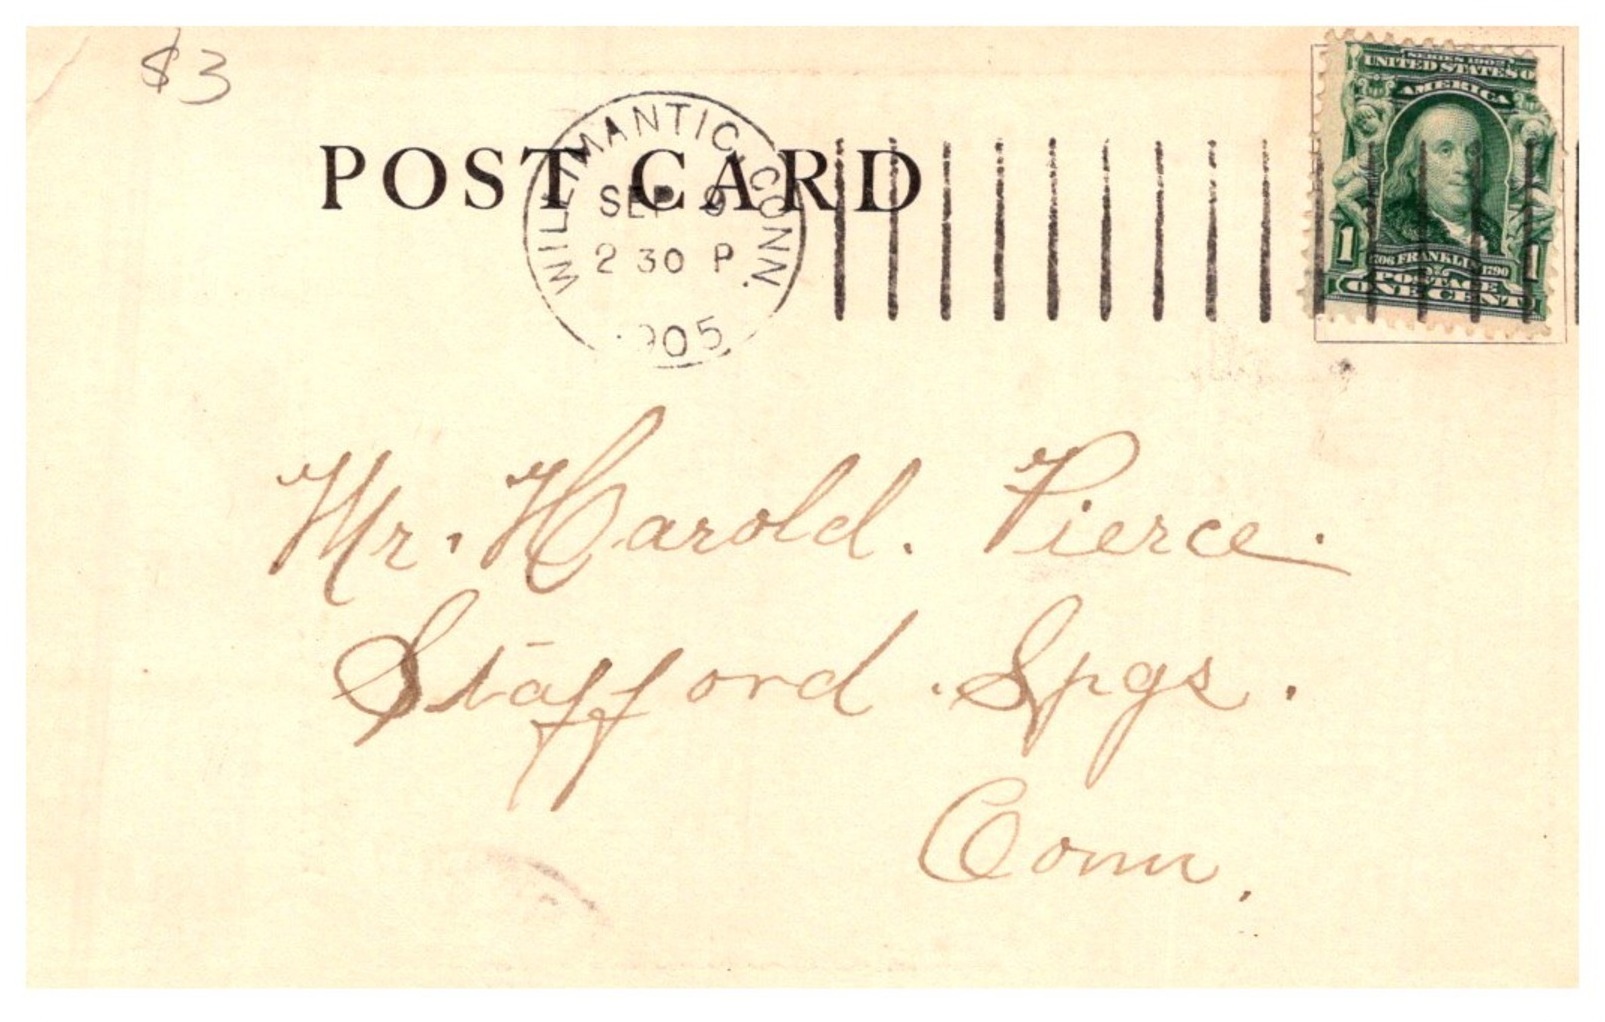 $3
POST CARD
WILLIMANTIC, CONN.
SEP 9
2 30 P
1905
SERIES 1902
UNITED STATES O
AMERICA
1 1
1706 FRANKLIN 1790
POSTAGE
ONE CENT
Mr. Harold. Pierce.
Stafford. Spgs.
Conn.